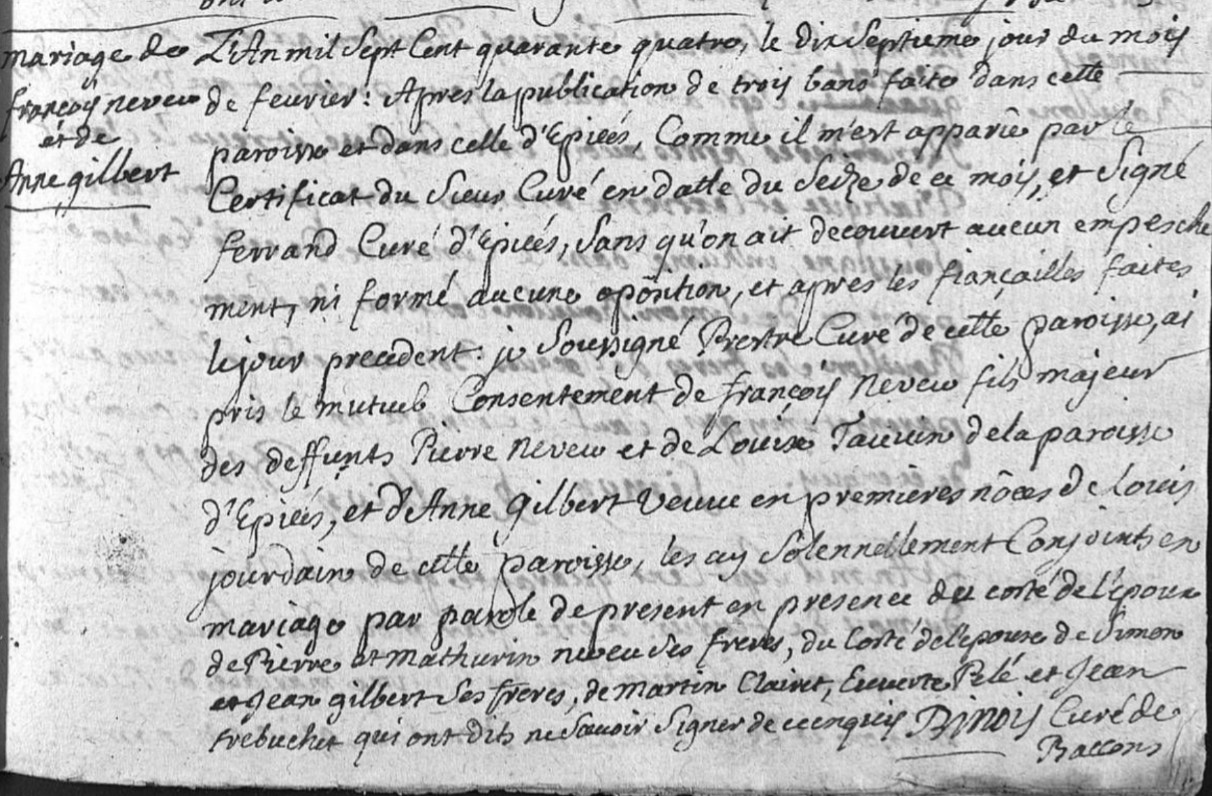 mariage de
françois neveu
et de
Anne gilbert
L'An mil Sept Cent quarante quatre, le dix Septieme jour du mois
de fevrier: Apres la publication de trois bans faite dans cette
paroisse et dans celle d'Epieés, Comme il m'est apparû par le
Certificat du Sieur Curé en datte du Seize de ce mois, et Signé
ferrand Curé d'Epieés, Sans qu'on ait decouvert aucun empesche
ment, ni formé aucune oposition, et apres les fiançailles faites
le jour precedent. je Soussigné Prestre Curé de cette paroisse, ai
pris le mutuel Consentement de françois Neveu fils majeur
des deffunts Pierre Neveu et de Louise Tauvin de la paroisse
d'Epieés, et d'Anne Gilbert Veuve en premieres nôces de Louis
jourdain de cette paroisse, les ay Solennellement Conjoints en
mariage par parole de present en presence du costé de l'époux
de Pierre et Mathurin neveu Ses freres, du Costé de l'epouse de Simon
et Jean gilbert Ses freres, de Martin Clairet, Euverte Pelé et Jean
trebuchet qui ont dits ne Savoir Signer de ce enquis Dinois Curé de
Baccons